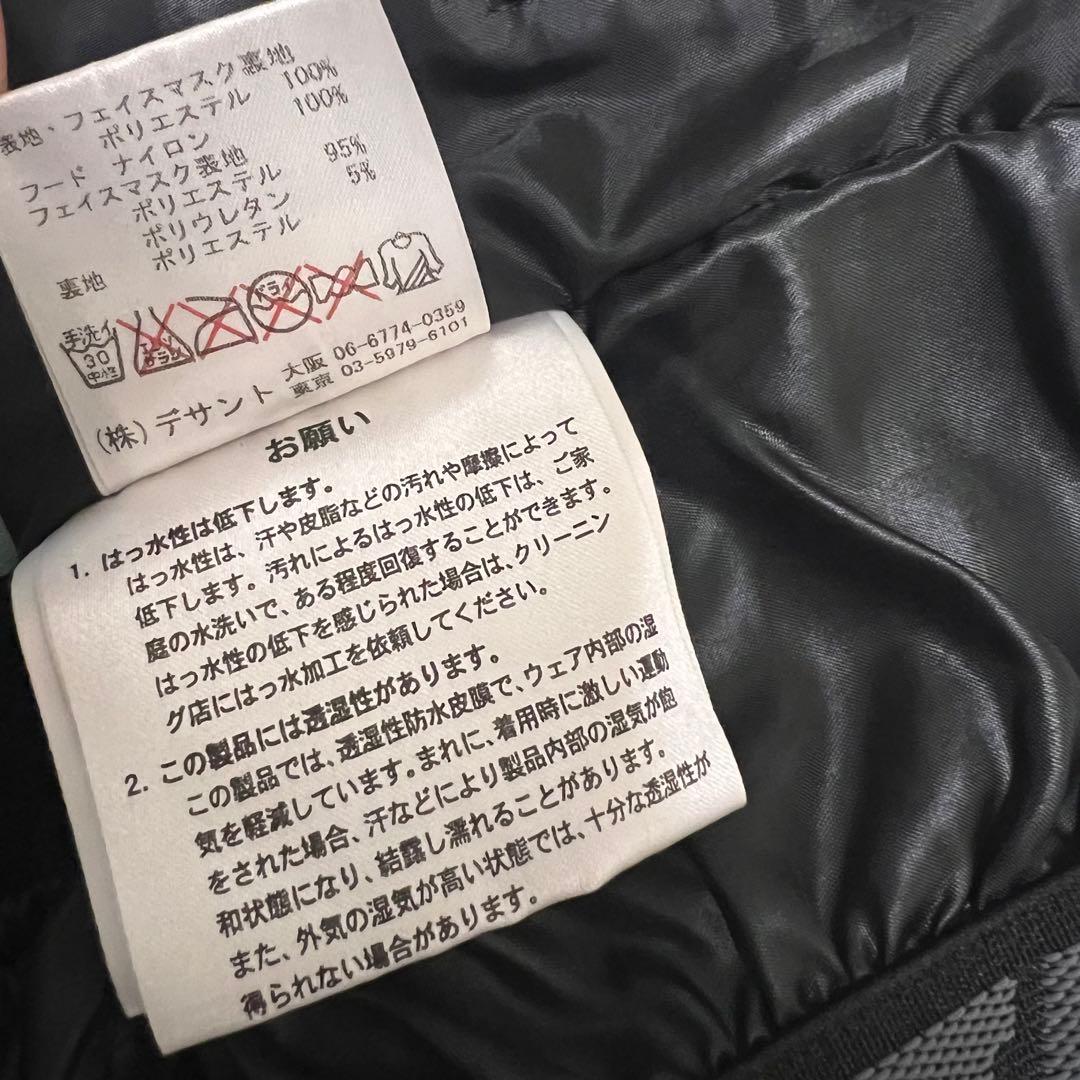 表地・フェイスマスク裏地
ポリエステル 100%
フード ナイロン 100%
フェイスマスク表地
ポリエステル 95%
ポリウレタン 5%
裏地 ポリエステル
手洗イ
30
中性
ドライ
(株)デサント 大阪 06-6774-0359
東京 03-5979-6101
お願い
1. はっ水性は低下します。
はっ水性は、汗や皮脂などの汚れや摩擦によって
低下します。汚れによるはっ水性の低下は、ご家
庭の水洗いで、ある程度回復することができます。
はっ水性の低下を感じられた場合は、クリーニン
グ店にはっ水加工を依頼してください。
2. この製品には透湿性があります。
この製品では、透湿性防水皮膜で、ウェア内部の湿
気を軽減しています。まれに、着用時に激しい運動
をされた場合、汗などにより製品内部の湿気が飽
和状態になり、結露し濡れることがあります。
また、外気の湿気が高い状態では、十分な透湿性が
得られない場合があります。